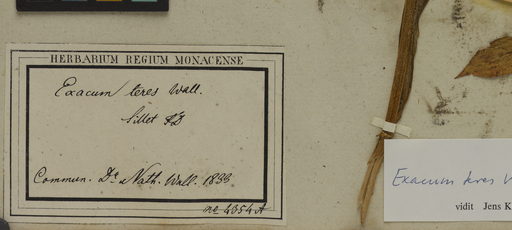 HERBARIUM REGIUM MONACENSE
Exacum teres Wall.
Sillet FB
Commun. Dr. Nath. Wall. 1833
no 4354 A
Exacum teres W
vidit Jens K